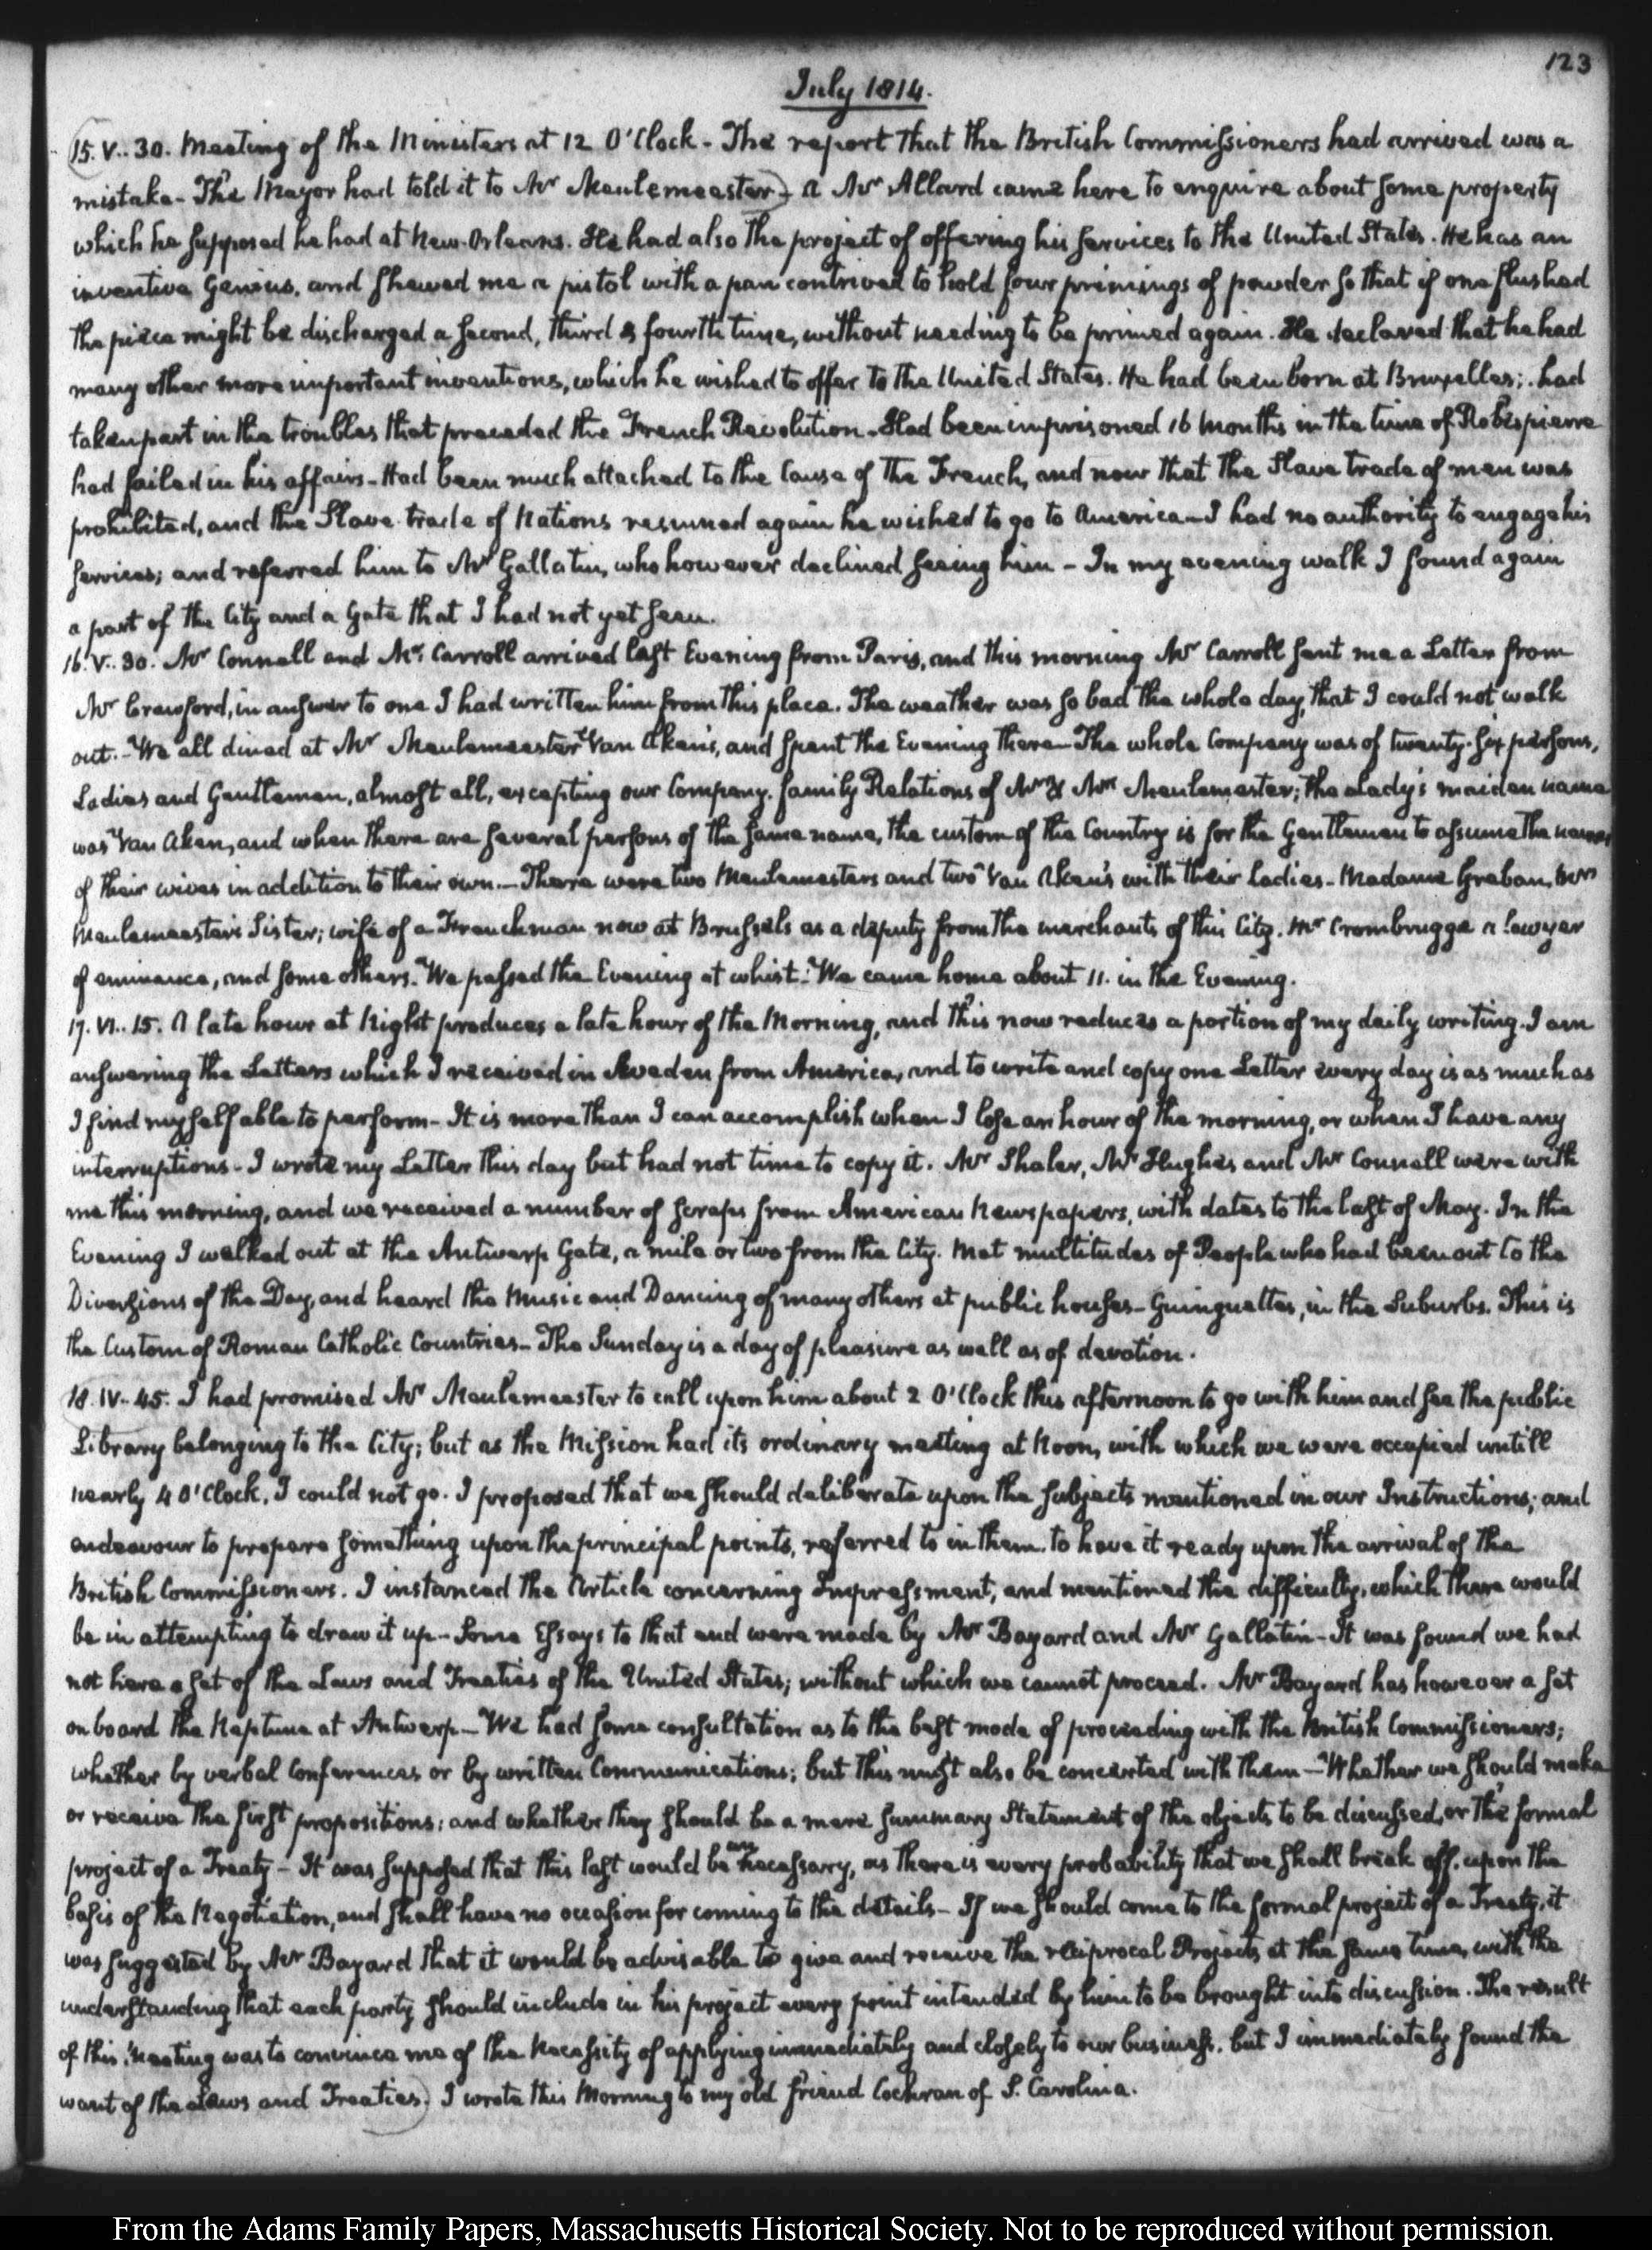 123
July 1814.
15. V..30. Meeting of the Ministers at 12 O'Clock - The report that the British Commissioners had arrived was a
mistake - The Mayor had told it to Mr Meulemeester - A Mr Allard came here to enquire about some property
which he supposed he had at New-Orleans. He had also the project of offering his services to the United States. He has an
inventive Genius, and shewed me a pistol with a pan contrived to hold four primings of powder so that if one flushed
the piece might be discharged a second, third & fourth time, without needing to be primed again. He declared that he had
many other more important inventions, which he wished to offer to the United States. He had been born at Bruxelles; had
taken part in the troubles that preceded the French Revolution - Had been imprisoned 16 Months in the time of Robespierre
had failed in his affairs - Had been much attached to the Cause of the French, and now that the Slave trade of men was
prohibited, and the Slave trade of Nations resumed again he wished to go to America - I had no authority to engage his
services; and referred him to Mr Gallatin, who however declined seeing him - In my evening walk I found again
a part of the City and a Gate that I had not yet seen.
16. V..30. Mr Connell and Mr Carroll arrived last Evening from Paris, and this morning Mr Carroll sent me a Letter from
Mr Crawford, in answer to one I had written him from this place. The weather was so bad the whole day, that I could not walk
out. - We all dined at Mr Meulemeester Van Aken's, and spent the Evening there - The whole Company was of twenty-six persons,
Ladies and Gentlemen, almost all, excepting our Company, family Relations of Mr & Mrs Meulemester; the Lady's maiden name
was Van Aken, and when there are several persons of the same name, the custom of the Country is for the Gentlemen to assume the names
of their wives in addition to their own. - There were two Meulemesters and two Van Aken's with their Ladies - Madame Greban, Mrs
Meulemeester's Sister; wife of a Frenchman now at Brussels as a deputy from the merchants of this City. Mr Crombrugge a lawyer
of eminence, and some others. We passed the Evening at whist. We came home about 11. in the Evening.
17. VI..15. A late hour at Night produces a late hour of the Morning, and this now reduces a portion of my daily writing. I am
answering the Letters which I received in Sweden from America, and to write and copy one Letter every day is as much as
I find myself able to perform - It is more than I can accomplish when I lose an hour of the morning, or when I have any
interruptions - I wrote my Letter this day but had not time to copy it. Mr Shaler, Mr Hughes and Mr Connell were with
me this morning, and we received a number of scraps from American Newspapers, with dates to the last of May. In the
Evening I walked out at the Antwerp Gate, a mile or two from the City. Met multitudes of People who had been out to the
Diversions of the Day, and heard the Music and Dancing of many others at public houses - Guinguettes, in the Suburbs. This is
the Custom of Roman Catholic Countries - The Sunday is a day of pleasure as well as of devotion.
18. IV..45. I had promised Mr Meulemeester to call upon him about 2 O'Clock this afternoon to go with him and see the public
Library belonging to the City; but as the Mission had its ordinary meeting at Noon, with which we were occupied untill
nearly 4 O'Clock, I could not go. I proposed that we should deliberate upon the subjects mentioned in our Instructions; and
endeavour to prepare something upon the principal points, referred to in them, to have it ready upon the arrival of the
British Commissioners. I instanced the Article concerning Impressment, and mentioned the difficulty, which there would
be in attempting to draw it up - Some Essays to that end were made by Mr Bayard and Mr Gallatin - It was found we had
not here a set of the Laws and Treaties of the United States; without which we cannot proceed. Mr Bayard has however a set
on board the Neptune at Antwerp - We had some consultation as to the best mode of proceeding with the British Commissioners;
whether by verbal Conferences or by written Communications; but this must also be concerted with them - Whether we should make
or receive the first propositions; and whether they should be a mere summary Statement of the objects to be discussed, or the formal
project of a Treaty - It was supposed that this last would be unnecessary, as there is every probability that we shall break off, upon the
basis of the Negotiation, and shall have no occasion for coming to the details - If we should come to the formal project of a Treaty, it
was suggested by Mr Bayard that it would be advisable to give and receive the reciprocal Projects at the same time, with the
understanding that each party should include in his project every point intended by him to be brought into discussion. The result
of this Meeting was to convince me of the Necessity of applying immediately and closely to our business, but I immediately found the
want of the Laws and Treaties. I wrote this Morning to my old friend Cochran of S. Carolina.
From the Adams Family Papers, Massachusetts Historical Society. Not to be reproduced without permission.